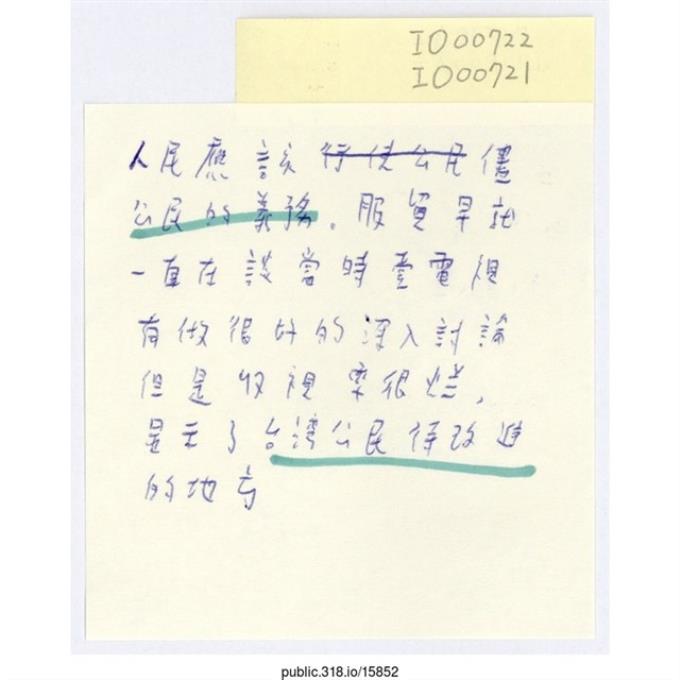 IO00722
IO00721
人民應該行使公民儘
公民的義務。服貿早就
一直在談當時臺電視
有做很好的深入討論
但是收視率很爛,
顯示了台灣公民待改進
的地方
public.318.io/15852